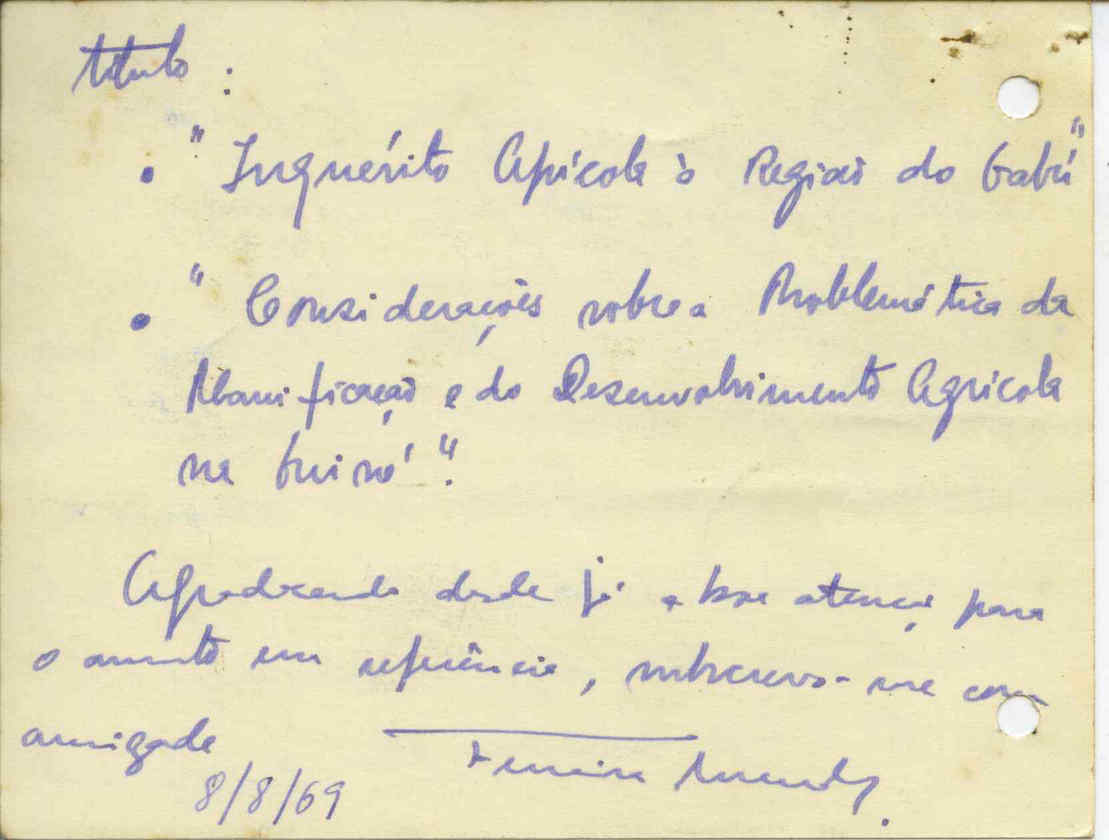 titulo :
• " Inquérito Apícola à Região do Gabú "
• " Considerações sobre a Problemática da
Planificação e do Desenvolvimento Agrícola
na Guiné ".
Agradecendo desde já a boa atenção para
o assunto em referência, subscrevo-me com
amizade
8/8/69